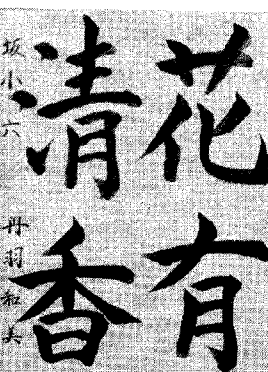 花有
清香
坂小六 丹羽和美